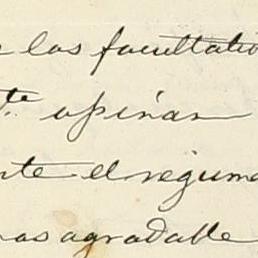 los facultativ
te opinan
nte el regime
mas agradable